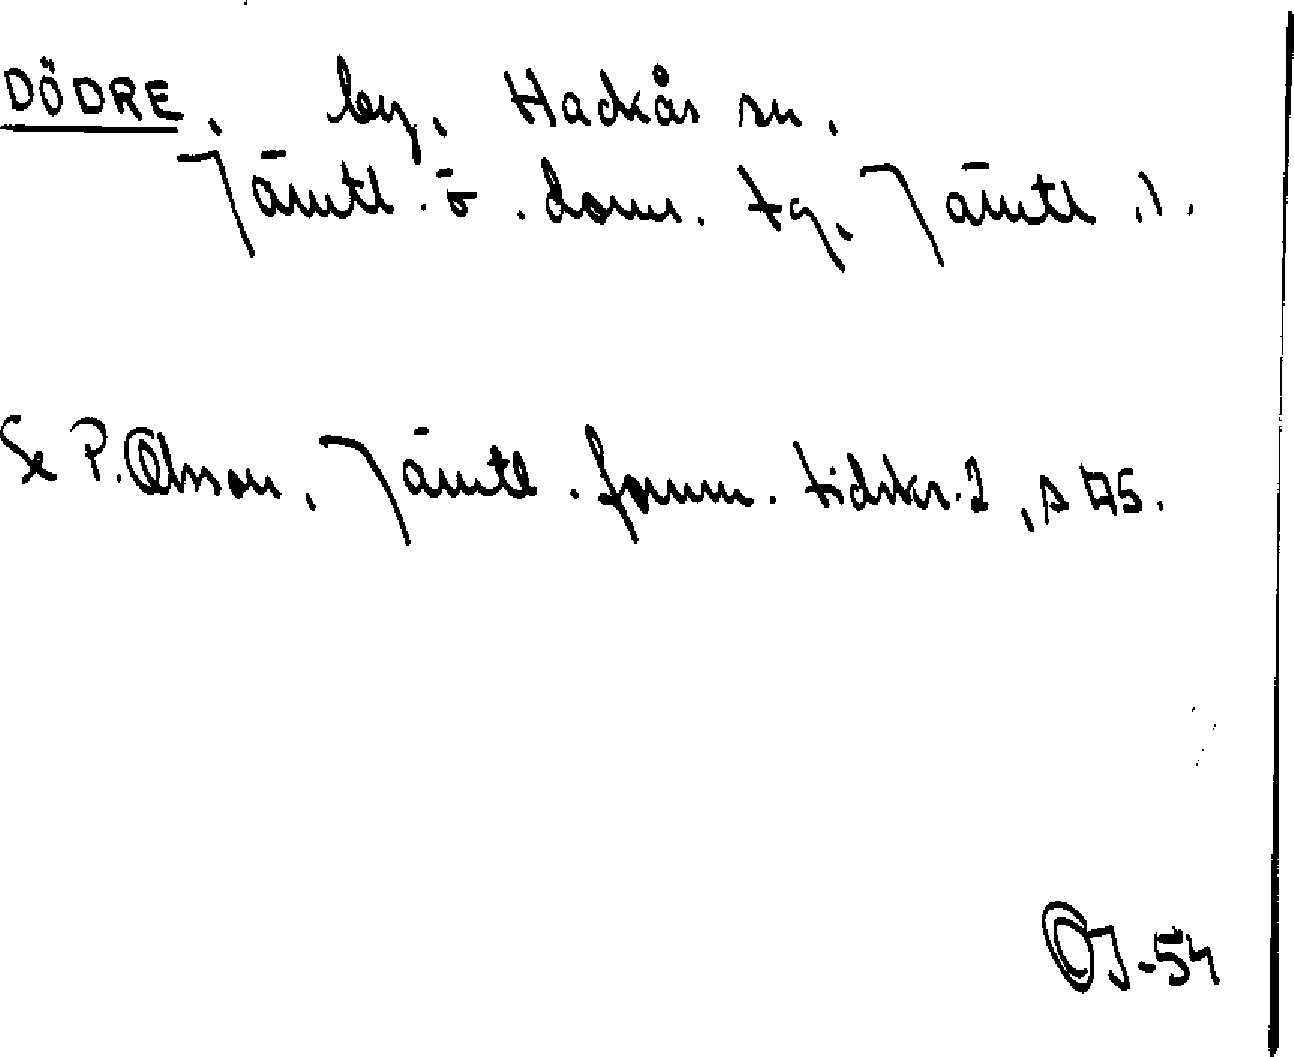 DÖDRE, by, Hackås sn,
Jämtl. ö. doms. tg, Jämtl. l.
Se P. Olsson, Jämtl. fornm. tidskr. 2, s 175.
OJ-54